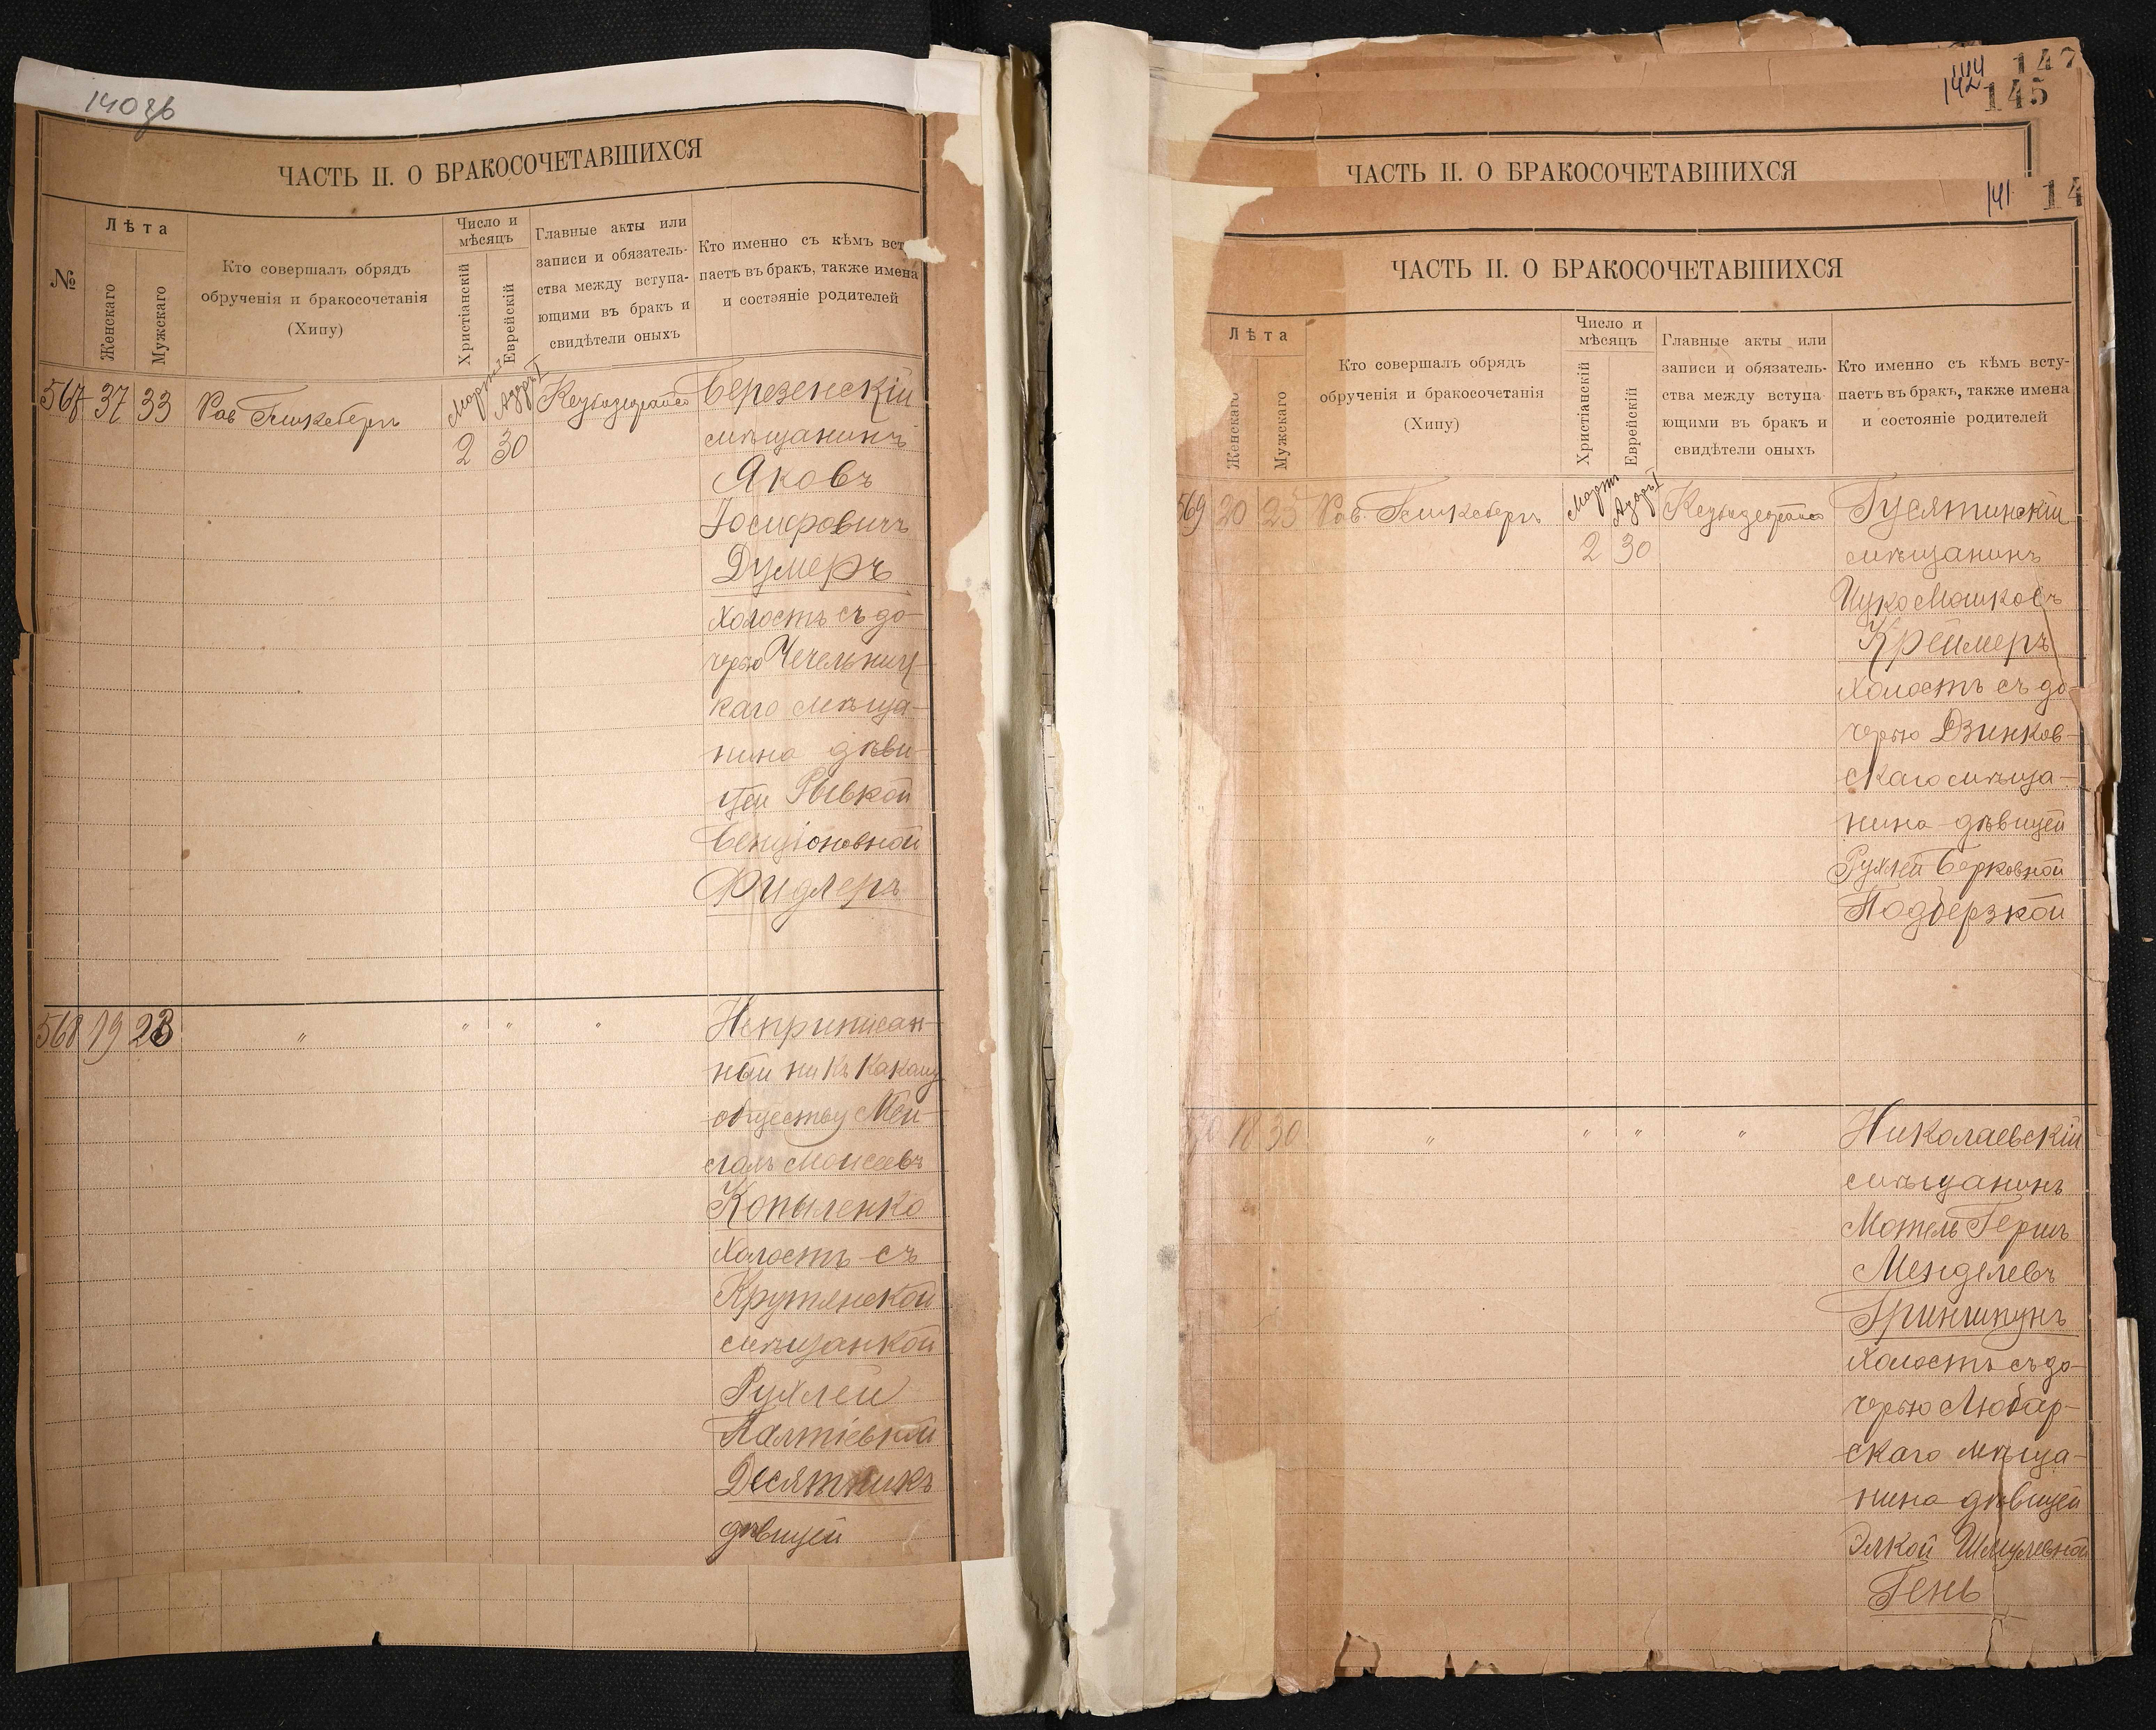 140зв
ЧАСТЬ II. О БРАКОСОЧЕТАВШИХСЯ
№
Лѣта
Женскаго
Мужскаго
Кто совершалъ обрядъ
обрученія и бракосочетанія
(Хипу)
Число и
мѣсяцъ
Христіанскій
Еврейскій
Главные акты или
записи и обязатель-
ства между вступа-
ющими въ бракъ и
свидѣтели оныхъ
Кто именно съ кѣмъ вст
паетъ въ бракъ, также имена
и состояніе родителей
567 37 33 Рав
Мартъ
Адаръ I
2 30
Березенскій
мѣщанинъ
Яковъ
Іосифовичъ
Думеръ
холостъ съ до-
черью Чечельниц-
каго мѣща-
нина дѣви-
цей Рывкой
Бенціоновной
Фидлеръ
568 19 23 " " " "
Неприписан-
ный ни къ какому
обществу Мей-
Моисеевъ
Копыленко
Холостъ съ
Крутянской
мѣщанкой
Рухлей
Палтіевной
Десятникъ
дѣвицей
147
144
142
145
ЧАСТЬ II. О БРАКОСОЧЕТАВШИХСЯ
141
14
ЧАСТЬ II. О БРАКОСОЧЕТАВШИХСЯ
Лѣта
Женскаго
Мужскаго
Кто совершалъ обрядъ
обрученія и бракосочетанія
(Хипу)
Число и
мѣсяцъ
Христіанскій
Еврейскій
Главные акты или
записи и обязатель-
ства между вступа
ющими въ бракъ и
свидѣтели оныхъ
Кто именно съ кѣмъ всту-
паетъ въ бракъ, также имена
и состояніе родителей
569 20 25 Рав.
Мартъ
Адаръ I
2 30
Гусятинскій
мѣщанинъ
Ицко Мошковъ
Креймеръ
Холостъ съ до-
черью Дзинков-
скаго мѣща-
нина дѣвицей
Рухлей Берковной
Подберзкой
570 18 30 " " " "
Николаевскій
мѣщанинъ
Мотель Гершъ
Менделевъ
Гриншпунъ
Холостъ съ до-
черью Любар-
скаго мѣща-
нина дѣвицей
Элкой Шмулевной
Гень